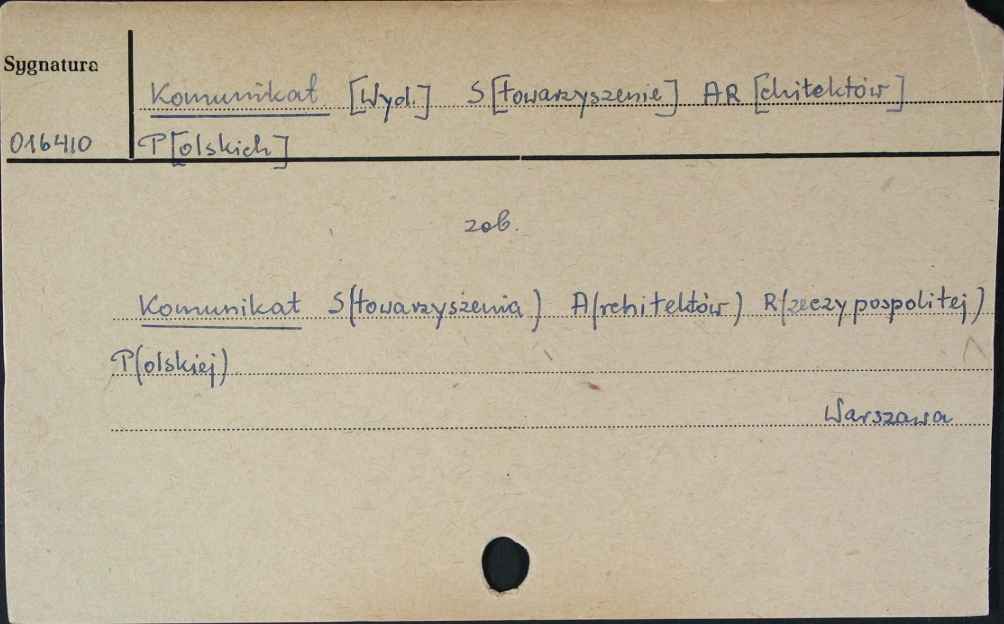 Sygnatura
Komunikat [Wyd.] S[towarzyszenie] AR[chitektów]
016410 P[olskich]
zob.
Komunikat S(towarzyszenia) A(rchitektów) R(zeczypospolitej)
P(olskiej)
Warszawa